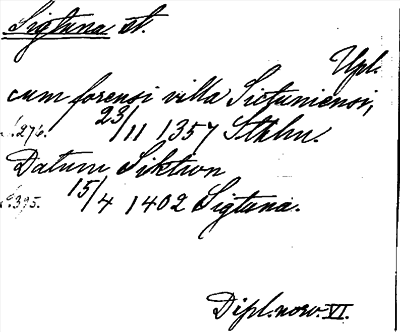 Sigtuna st.
Upl.
cum forensi villa Sictuniensi,
s. 276. 23/11 1357 Sthlm.
Datum Siktion
s. 395. 15/4 1402 Sigtuna.
Dipl. norv. VI.